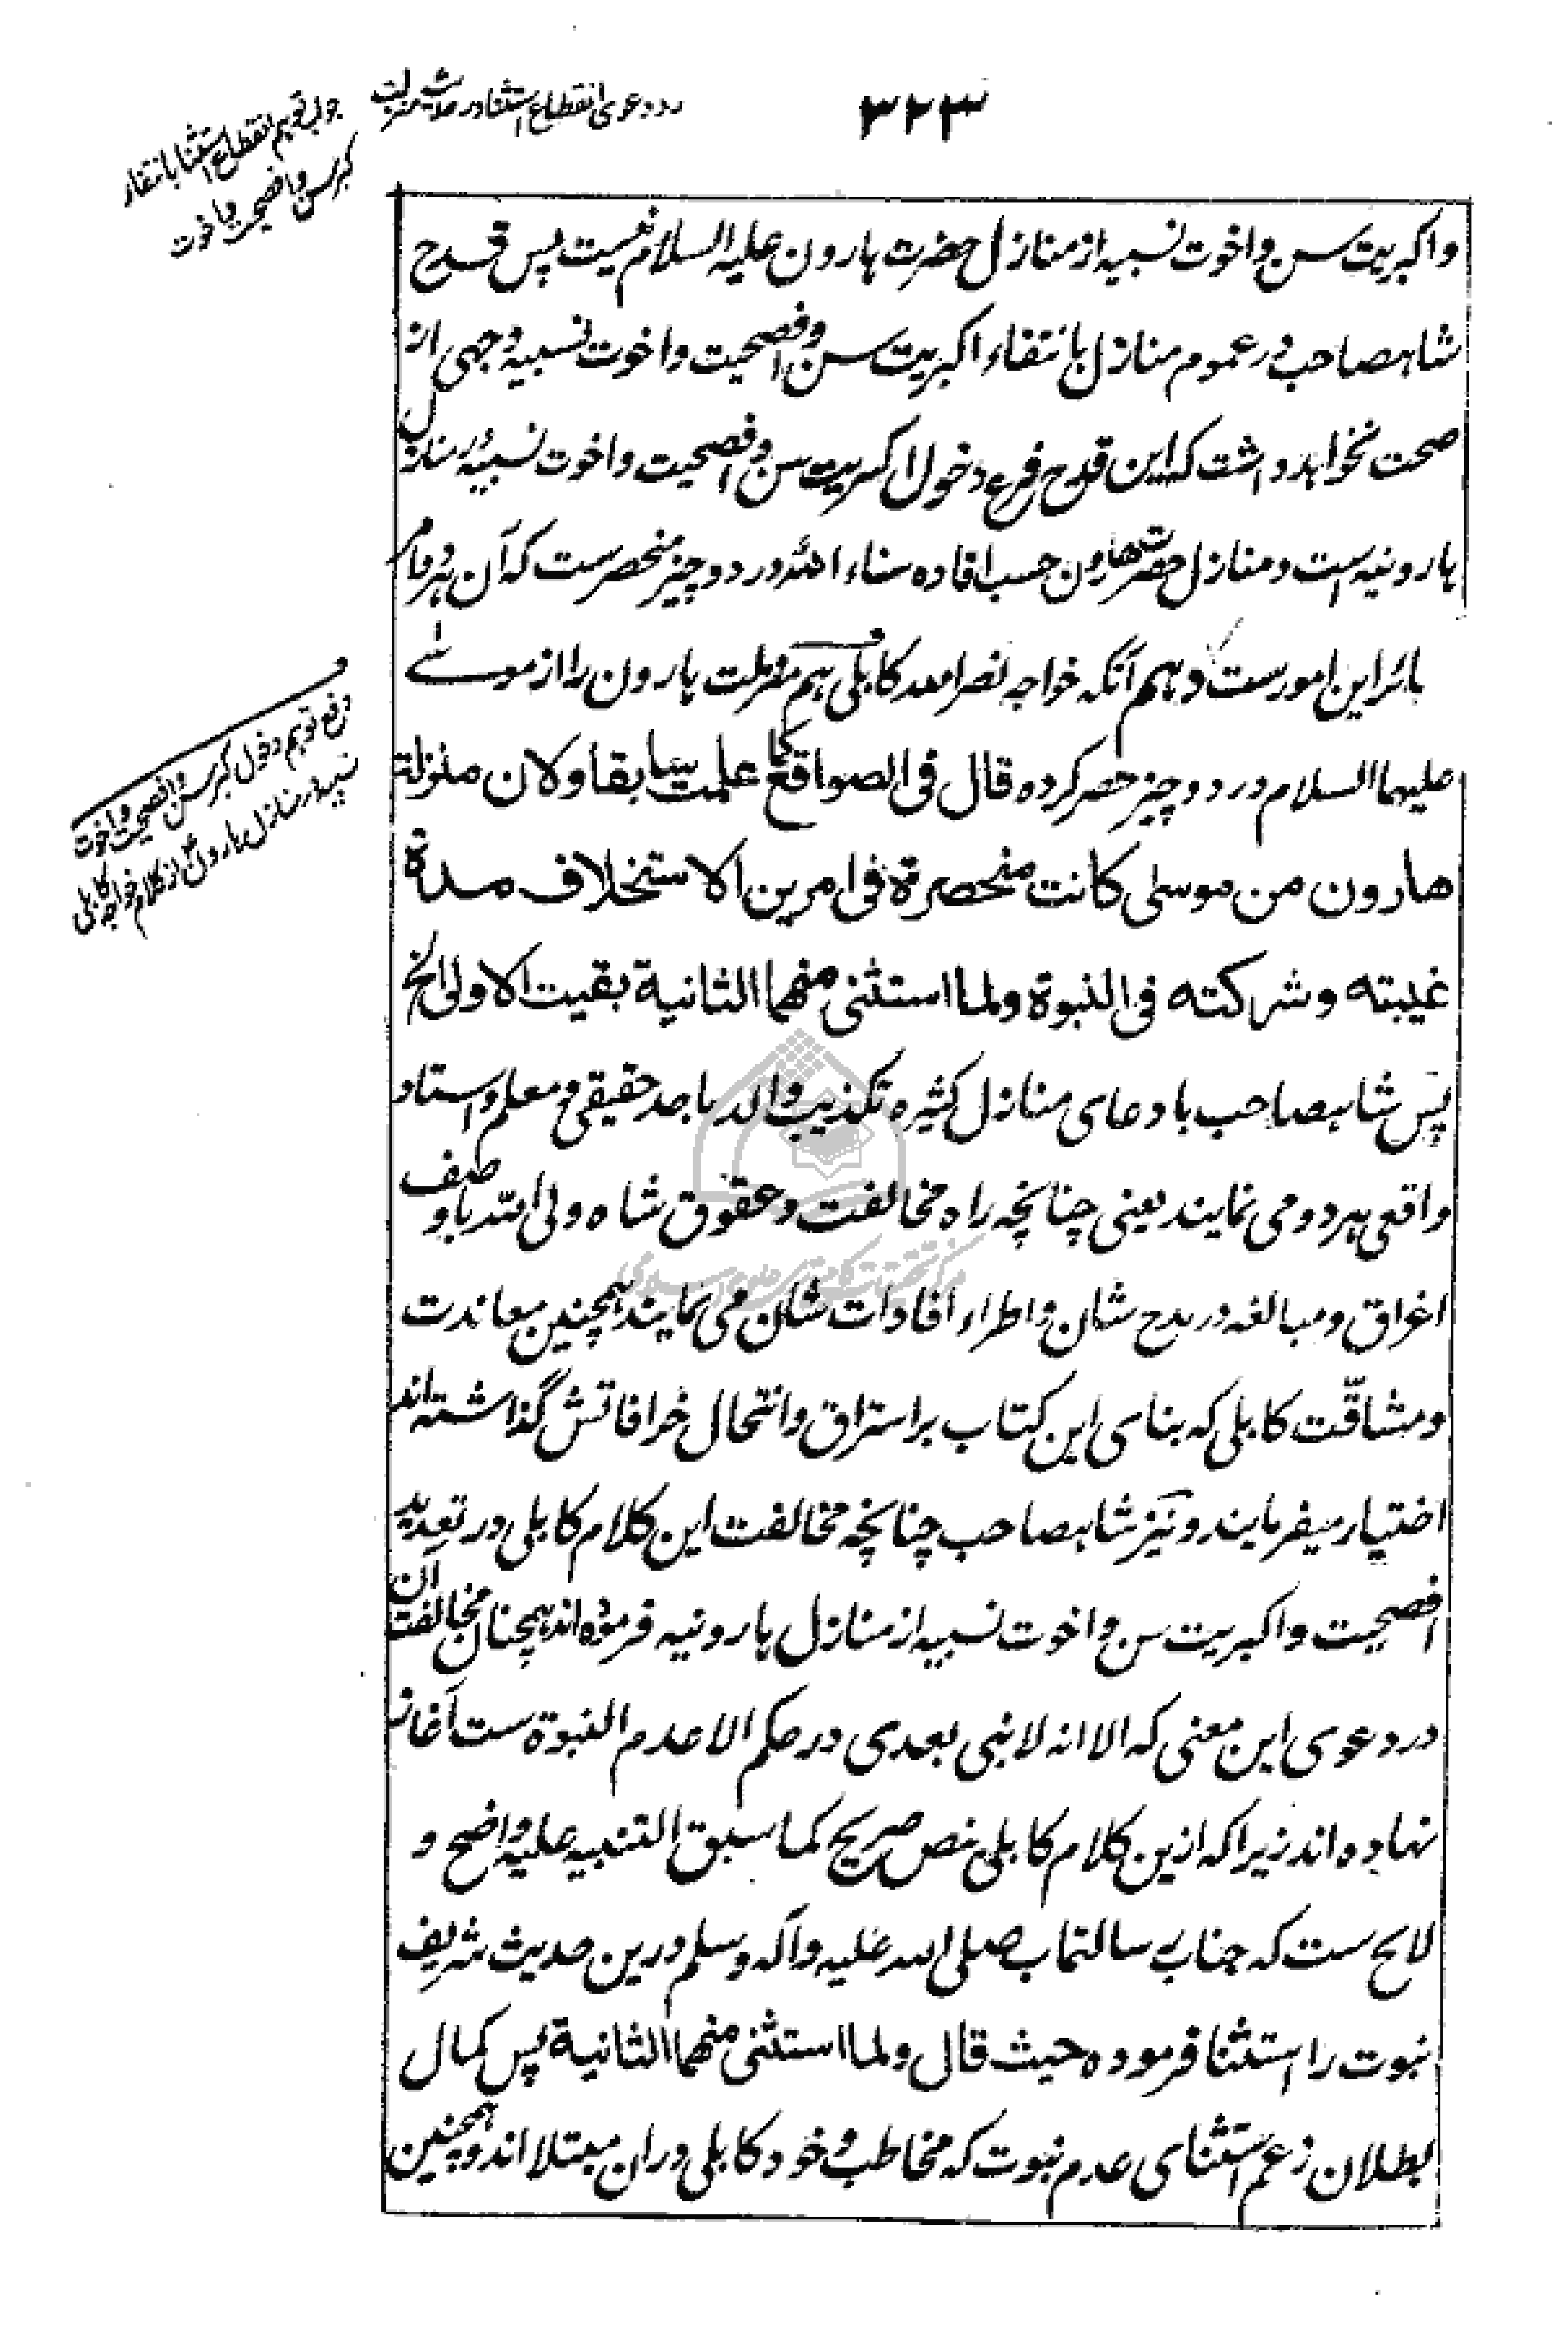 ۳۲۳
رد دعوی انقطاع استثنا در حدیث منزلت
جواب توهم انقطاع استثنا بانتفاء
کبر سن و افصحیت و اخوت
واکبریت سن و اخوت نسبیه از منازل حضرت هارون علیه السلام نیست پس قدح
شاهصاحب در عموم منازل بانتفاء اکبریت سن و افصحیت و اخوت نسبیه وجهی از
صحت نخواهد داشت که این قدح فرع دخول اکبریت سن و افصحیت و اخوت نسبیه در منازل
هارونیه است و منازل حضرت هارون حسب افاده سناء الله در دو چیز منحصرست که آن هر دو مر
باین امورست و هم آنکه خواجه نصر الله کابلی هم منزلت هارون را از موسی
علیهما السلام در دو چیز حصر کرده قال فی الصواقع کما علمت سابقا ولان منزلة
هارون من موسی کانت منحصرة فی امرین الاستخلاف مدة
غیبته وشرکته فی النبوة ولما استثنی منهما الثانیة بقیت الاولی الخ
دفع توهم دخول کبر سن و افصحیت و اخوت
نسبیه در منازل هارون از کلام خواجه کابلی
پس شاهصاحب بادعای منازل کثیره تکذیب والد ماجد حقیقی و معلم و استاد
واقعی هر دو می نمایند یعنی چنانچه راه مخالفت و عقوق شاه ولی الله با وصف
اغراق و مبالغه در مدح شان و اطراء افادات شان می نمایند همچنین معاندت
ومشاقّت کابلی که بنای این کتاب بر استراق و انتحال خرافاتش گذاشته اند
اختیار میفرمایند و نیز شاهصاحب چنانچه مخالفت این کلام کابلی در تعدید
افصحیت و اکبریت سن و اخوت نسبیه از منازل هارونیه فرموده اند همچنان مخالفت آن
در دعوی این معنی که الا انه لا نبی بعدی در حکم الا عدم النبوة ست آغاز
نهاده اند زیرا که ازین کلام کابلی بنص صریح کما سبق التنبیه علیه واضح و
لایح ست که جناب رسالتماب صلی الله علیه وآله وسلم درین حدیث شریف
نبوت را استثنا فرموده حیث قال ولما استثنی منهما الثانیة پس کمال
بطلان زعم استثنای عدم نبوت که مخاطب و خود کابلی دران مبتلا اند و همچنین